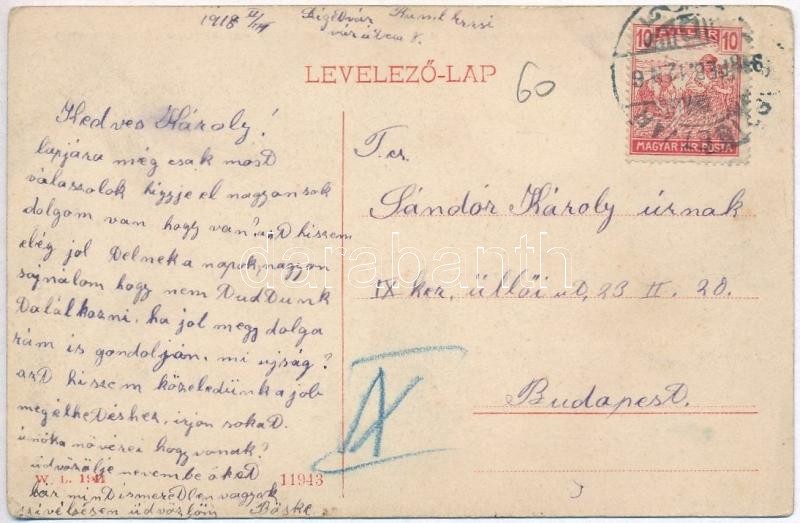 1918 II/11
Szigetvár
LEVELEZŐ-LAP
60
10 FILLÉR 10
MAGYAR KIR. POSTA
Kedves Károly!
lapjára még csak most
válaszolok higgje el nagyon sok
dolgom van hogy van? azt hiszem
elég jól telnek a napok, nagyon
sajnálom hogy nem tudtunk
találkozni, ha jól megy dolga
rám is gondolján, mi ujság?
azt hiszem közeledünk a job
megélhetéshez, irjon sokat.
únóka növérei hogy vanak?
üdvözölje nevembe őket
bár mind ismeretlen vagyok
szívélyesen üdvözlöm Böske
T. cz.
Sándór Károly úrnak
IX ker, üllői ut, 23 II. 20.
Budapest.
IX
W. L. 1911
11943
darabanth